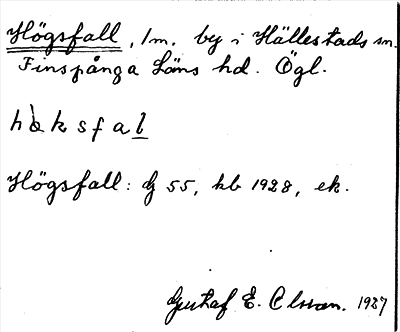 Högsfall, 1m. by i Hällestads sn.
Finspånga Läns hd. Ögl.
h k s f a l
Högsfall: 55, kb 1928, ek.
Gustaf E. Olsson. 1927